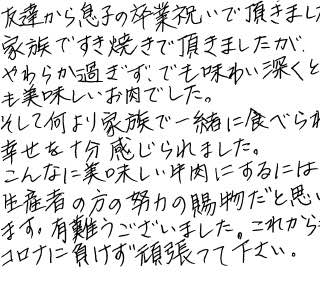 友達から息子の卒業祝いで頂きまし
家族ですき焼きで頂きましたが、
やわらか過ぎず、でも味わい深くと
も美味しいお肉でした。
そして何より家族で一緒に食べられ
幸せを十分感じられました。
こんなに美味しい牛肉にするには
生産者の方の努力の賜物だと思い
ます。有難うございました。これから
コロナに負けず頑張って下さい。